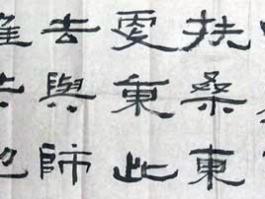 扶桑東
更東此
去與師